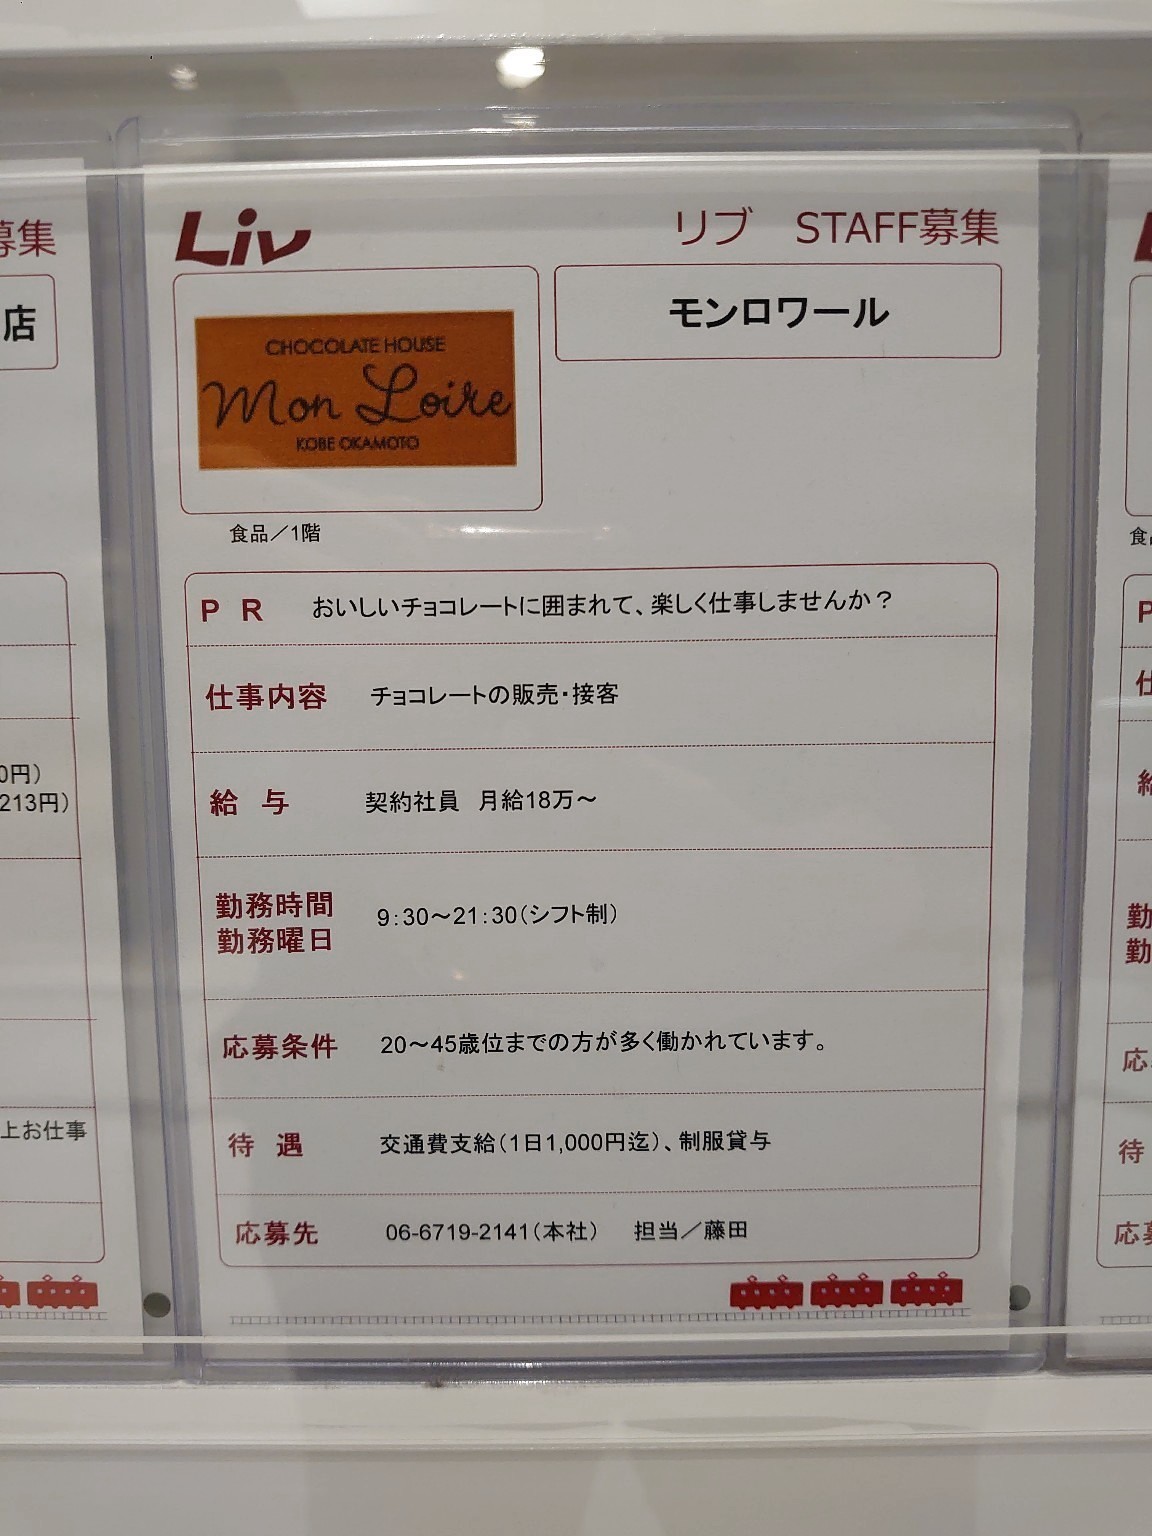 募集
店
0円）
213円）
上お仕事
Liv
リブ　STAFF募集
モンロワール
CHOCOLATE HOUSE
Mon Loire
KOBE OKAMOTO
食品／1階
ＰＲ　おいしいチョコレートに囲まれて、楽しく仕事しませんか？
仕事内容　チョコレートの販売・接客
給与　契約社員　月給18万～
勤務時間
勤務曜日　9：30～21：30（シフト制）
応募条件　20～45歳位までの方が多く働かれています。
待遇　交通費支給（1日1,000円迄）、制服貸与
応募先　06-6719-2141（本社）　担当／藤田
食
P
仕
給
勤
勤
応
待
応募